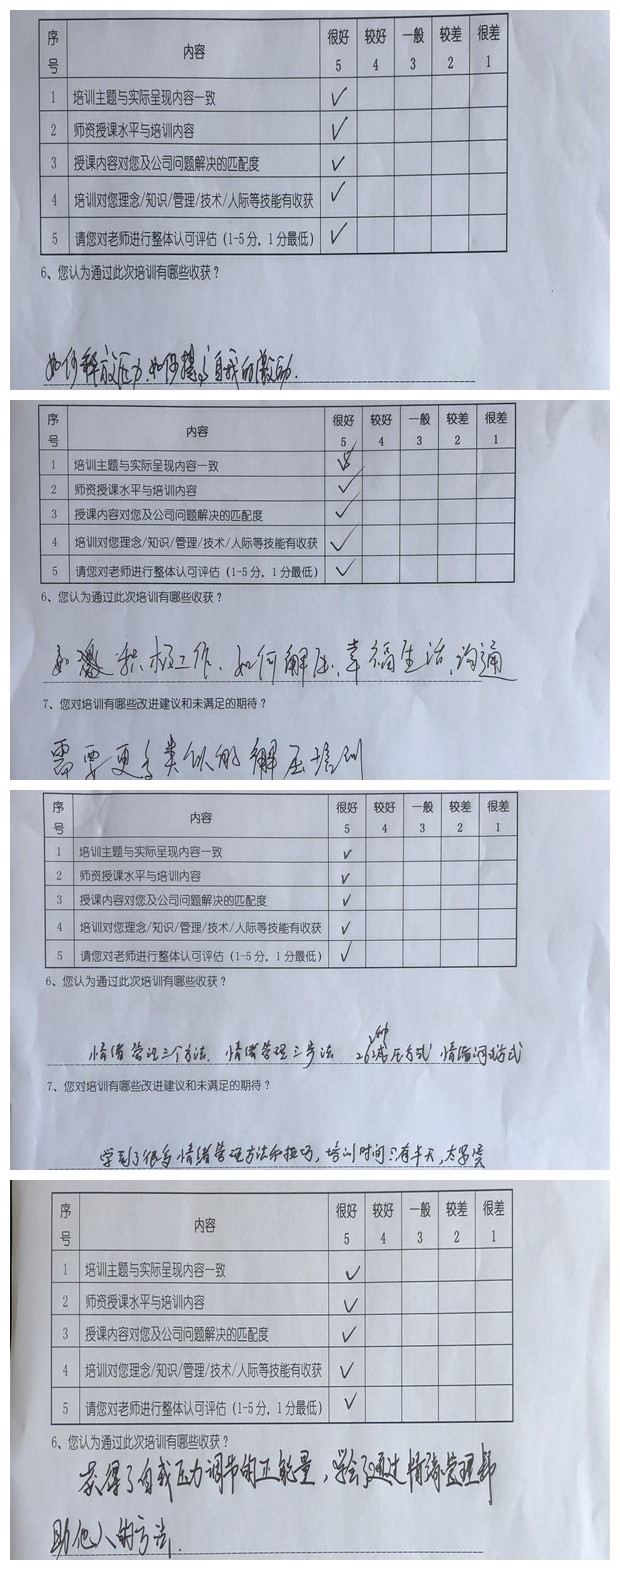 序号 内容 很好5 较好4 一般3 较差2 很差1
1 培训主题与实际呈现内容一致 ✓
2 师资授课水平与培训内容 ✓
3 授课内容对您及公司问题解决的匹配度 ✓
4 培训对您理念/知识/管理/技术/人际等技能有收获 ✓
5 请您对老师进行整体认可评估（1-5分，1分最低） ✓
6、您认为通过此次培训有哪些收获？
如何释放压力、如何提高自我的激励.
序号 内容 很好5 较好4 一般3 较差2 很差1
1 培训主题与实际呈现内容一致 ✓
2 师资授课水平与培训内容 ✓
3 授课内容对您及公司问题解决的匹配度 ✓
4 培训对您理念/知识/管理/技术/人际等技能有收获 ✓
5 请您对老师进行整体认可评估（1-5分，1分最低） ✓
6、您认为通过此次培训有哪些收获？
积极工作、如何解压、幸福生活、沟通
7、您对培训有哪些改进建议和未满足的期待？
需要更多类似的解压培训
序号 内容 很好5 较好4 一般3 较差2 很差1
1 培训主题与实际呈现内容一致 ✓
2 师资授课水平与培训内容 ✓
3 授课内容对您及公司问题解决的匹配度 ✓
4 培训对您理念/知识/管理/技术/人际等技能有收获 ✓
5 请您对老师进行整体认可评估（1-5分，1分最低） ✓
6、您认为通过此次培训有哪些收获？
情绪管理三个方法. 情绪管理三步法 26种减压方式 情绪调节方式
7、您对培训有哪些改进建议和未满足的期待？
学到了很多情绪管理方法和技巧，培训时间只有半天，太紧凑
序号 内容 很好5 较好4 一般3 较差2 很差1
1 培训主题与实际呈现内容一致 ✓
2 师资授课水平与培训内容 ✓
3 授课内容对您及公司问题解决的匹配度 ✓
4 培训对您理念/知识/管理/技术/人际等技能有收获 ✓
5 请您对老师进行整体认可评估（1-5分，1分最低） ✓
6、您认为通过此次培训有哪些收获？
获得了自我压力调节的正能量，学会了通过情绪管理帮
助他人的方法.